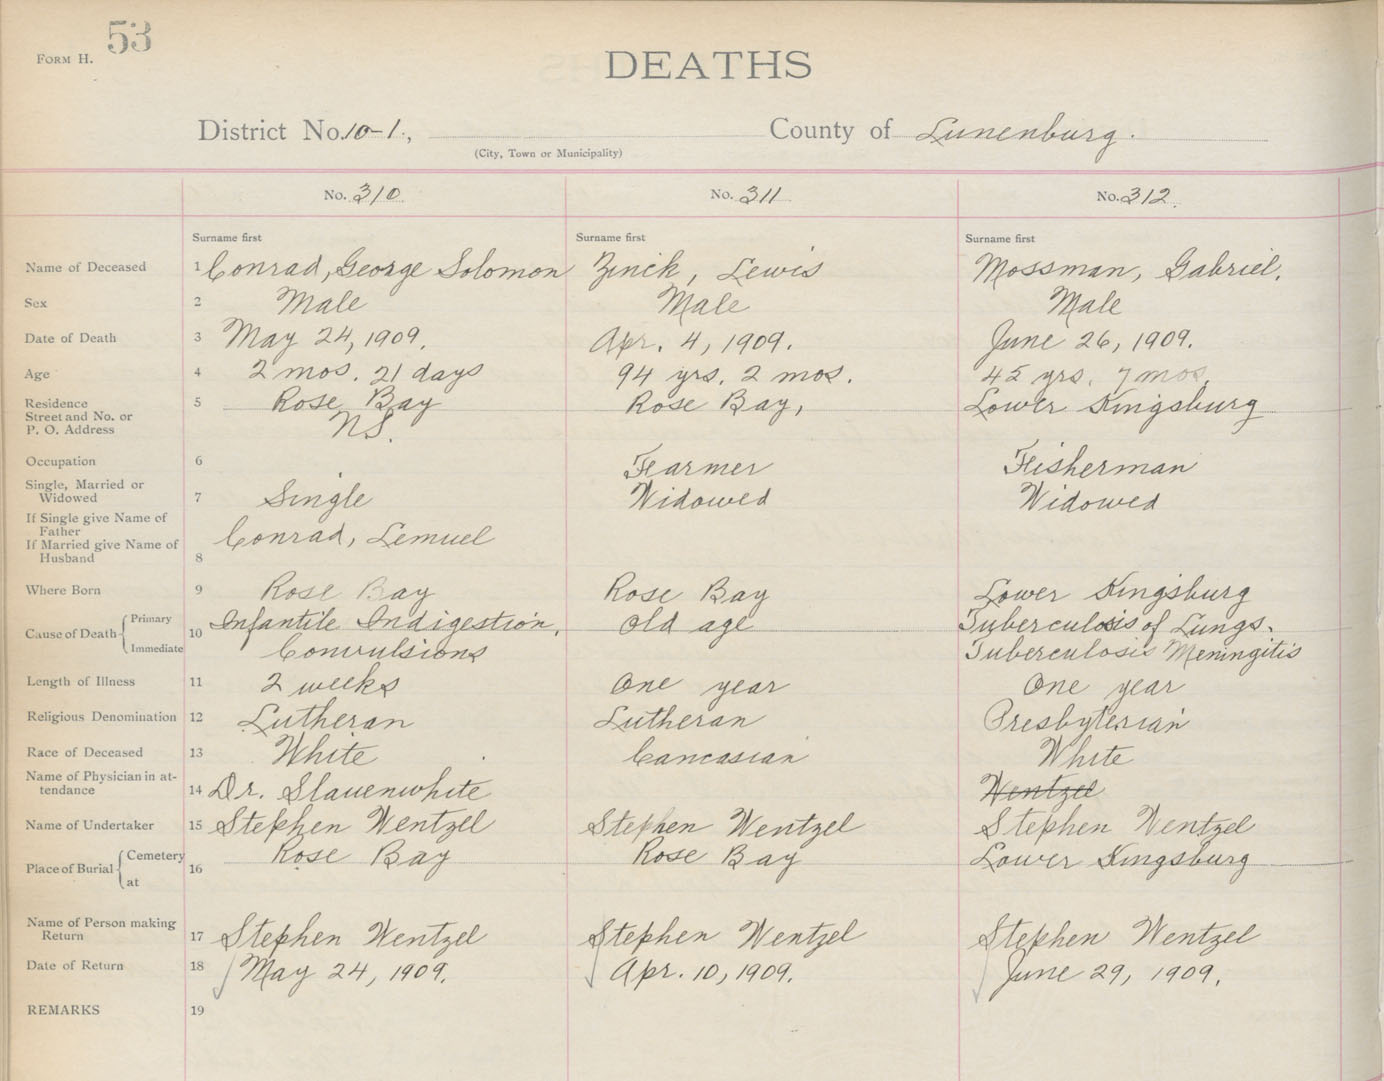 53
FORM H.
DEATHS
District No. 10-1., County of Lunenburg.
(City, Town or Municipality)
No. 310 No. 311 No. 312
Surname first Surname first Surname first
Name of Deceased 1 Conrad, George Solomon Zinck, Lewis Mossman, Gabriel.
Sex 2 Male Male Male
Date of Death 3 May 24, 1909. Apr. 4, 1909. June 26, 1909.
Age 4 2 mos. 21 days 94 yrs. 2 mos. 45 yrs. 7 mos.
Residence 5 Rose Bay Rose Bay, Lower Kingsburg
Street and No. or N.S.
P. O. Address
Occupation 6 Farmer Fisherman
Single, Married or
Widowed 7 Single Widowed Widowed
If Single give Name of
Father
If Married give Name of Conrad, Lemuel
Husband 8
Where Born 9 Rose Bay Rose Bay Lower Kingsburg
Cause of Death Primary 10 Infantile Indigestion, Old age Tuberculosis of Lungs.
Immediate Convulsions Tuberculosis Meningitis
Length of Illness 11 2 weeks One year One year
Religious Denomination 12 Lutheran Lutheran Presbyterian
Race of Deceased 13 White Cancasian White
Name of Physician in at-
tendance 14 Dr. Slauenwhite Wentzel
Name of Undertaker 15 Stephen Wentzel Stephen Wentzel Stephen Wentzel
Place of Burial Cemetery 16 Rose Bay Rose Bay Lower Kingsburg
at
Name of Person making
Return 17 Stephen Wentzel Stephen Wentzel Stephen Wentzel
Date of Return 18 May 24, 1909. Apr. 10, 1909. June 29, 1909.
REMARKS 19